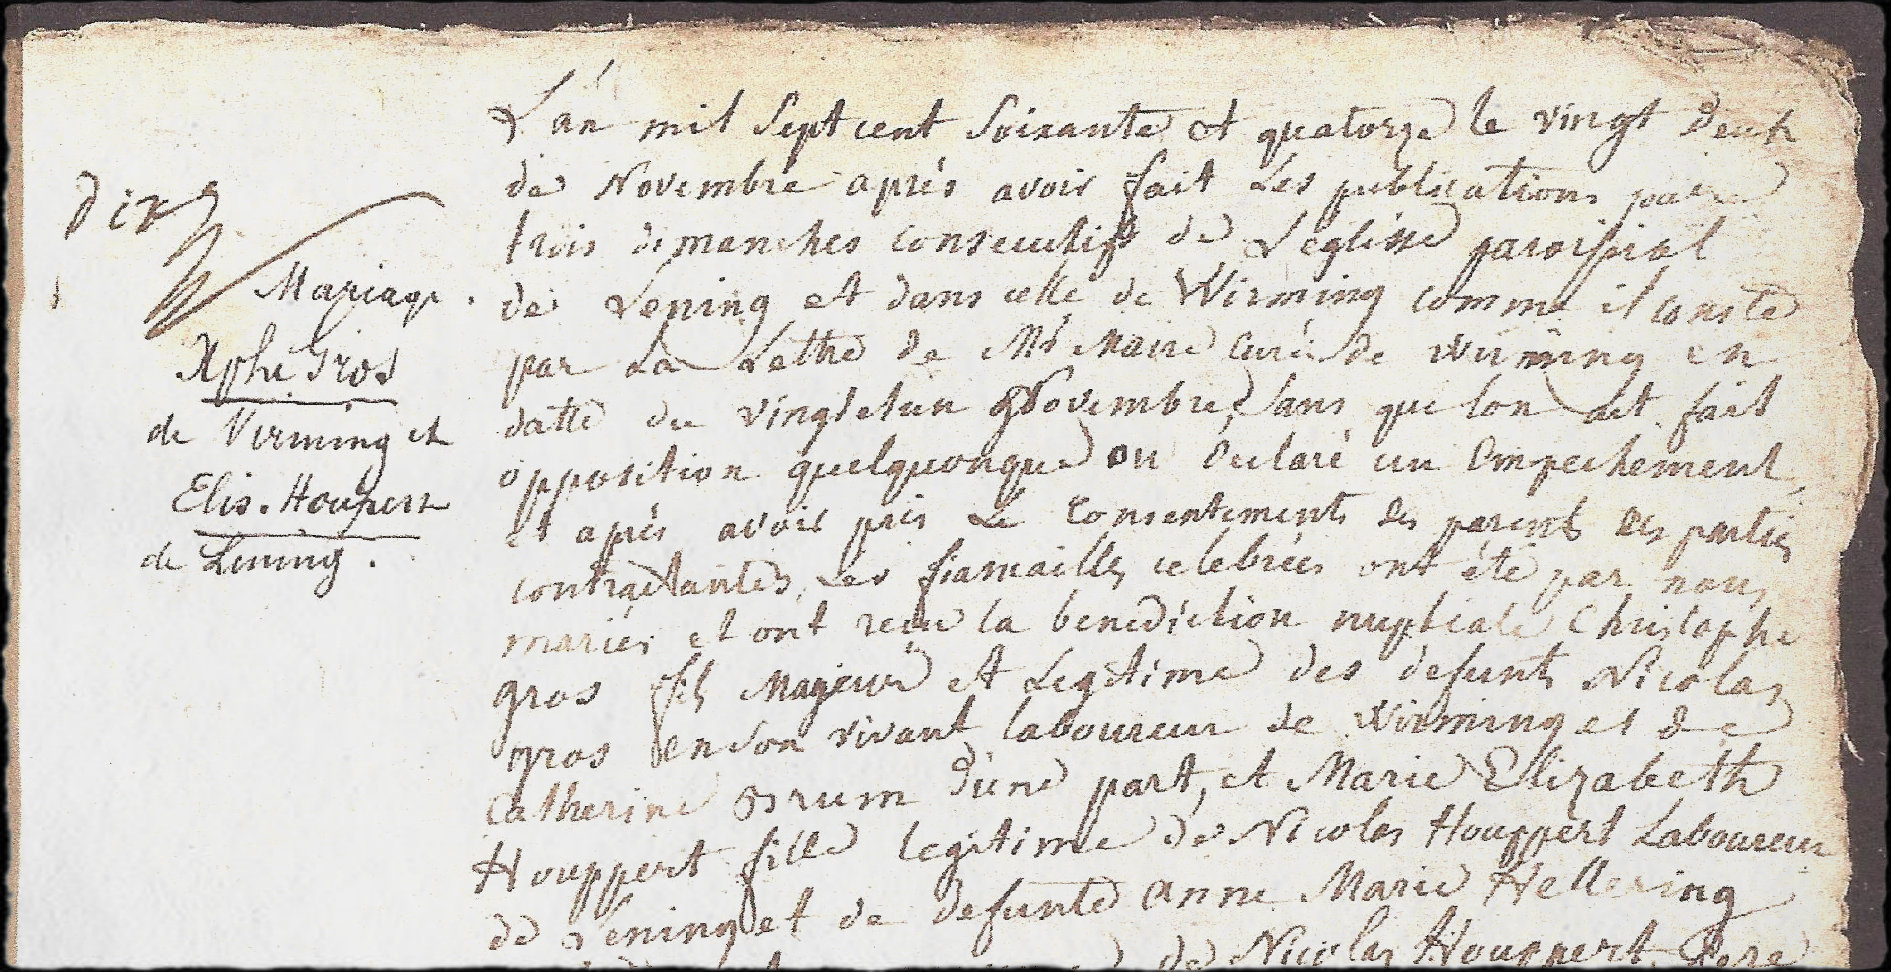 dix
Mariage.
Xphe Gros
de Virming et
Elis. Houpert
de Lening.
L'an mil sept cent soixante et quatorze le vingt deux
de Novembre après avoir fait les publications par
trois dimanches consecutifs de L'eglisse paroissial
de Lening et dans celle de Wirming comme il conste
par La Lettre de Mr Maire curé de wirming en
datte du vingt et un Novembre, sans que lon ait fait
opposition quelquonque ou declaré un Empechement,
et après avoir pris Le Consentements des parents des parties
contractantes, Les fiamailles celebrées ont été par nous
mariés et ont recu la benediction nuptiale Christophe
gros fils Majeur et Legitime des defunts Nicolas
gros en son vivant laboureur de Wirming et de
Catherine Brum d'une part, et Marie Elizabeth
Houppert fille legitime de Nicolas Houppert Laboureur
de Lening et de defunte Anne Marie Hellering
de Nicolas Houppert Pere